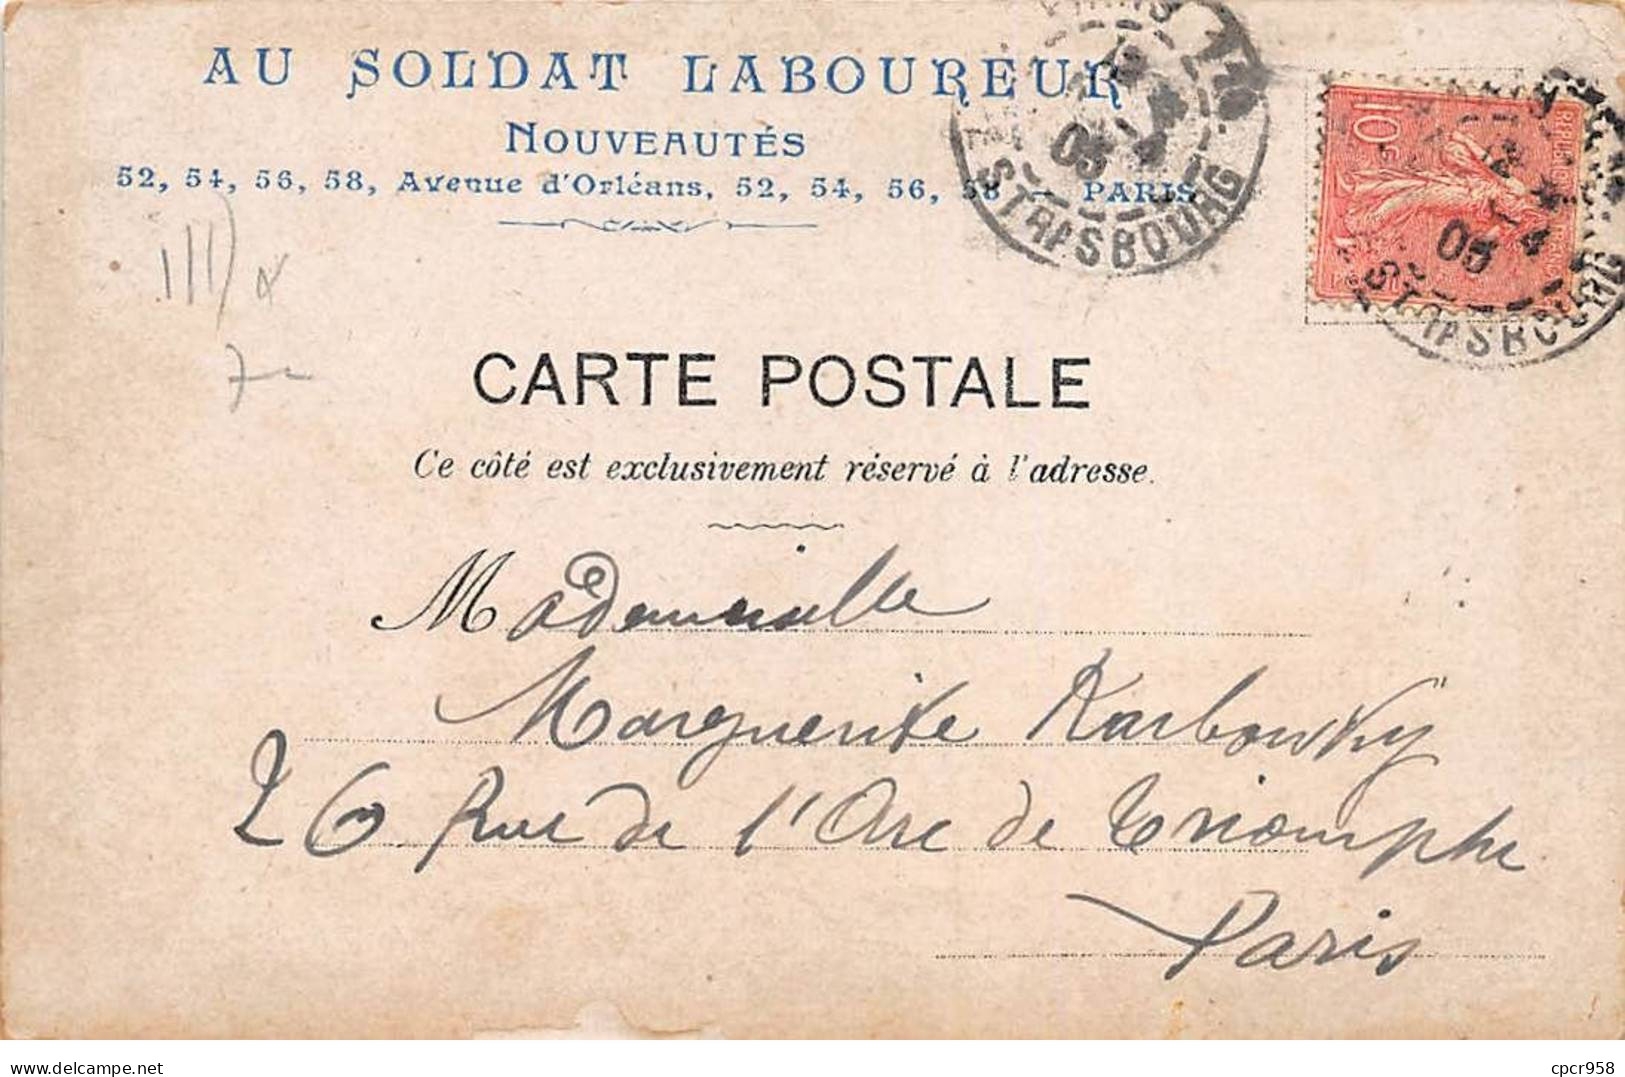 AU SOLDAT LABOUREUR
NOUVEAUTÉS
52, 54, 56, 58, Avenue d'Orléans, 52, 54, 56, 58 — PARIS
STRASBOURG
05
10
05
CARTE POSTALE
Ce côté est exclusivement réservé à l'adresse.
Mademoiselle
Marguerite Karbowsky
26 Rue de l'Arc de Triomphe
Paris
delcampe.net
cpcr958